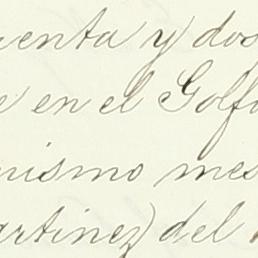 uenta y dos
e en el Golfo
mismo mes
artinez) del